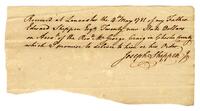 Received at Lancaster the 4 May 1781 of my Father
Edward Shippen Esqr. Twenty nine State Dollars
on Accot. of the Revd. Mr. George Craig in Chester County
which I promise to return to him or his Order.
Joseph Shippen Jr.